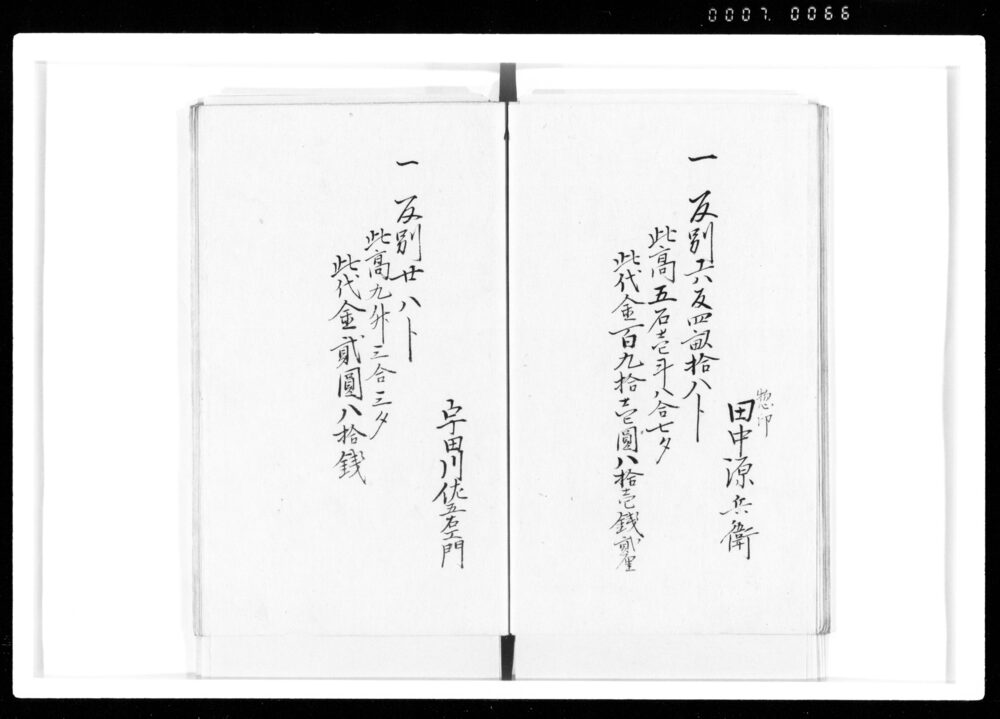 0007. 0066
惣印
田中源兵衛
一 反別六反四畝拾八卜
此高五石壱斗八合七夕
此代金百九拾壱圓八拾壱銭貳厘
宇田川佐五右エ門
一 反別廿八卜
此高九升三合三夕
此代金貳圓八拾銭